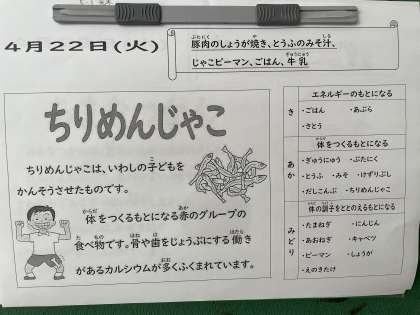 4月22日(火)
豚肉のしょうが焼き、とうふのみそ汁、
じゃこピーマン、ごはん、牛乳
ちりめんじゃこ
ちりめんじゃこは、いわしの子どもを
かんそうさせたものです。
体をつくるもとになる赤のグループの
食べ物です。骨や歯をじょうぶにする働き
があるカルシウムが多くふくまれています。
き
エネルギーのもとになる
・ごはん ・あぶら
・さとう
あか
体をつくるもとになる
・ぎゅうにゅう ・ぶたにく
・とうふ ・みそ ・けずりぶし
・だしこんぶ ・ちりめんじゃこ
みどり
体の調子をととのえるもとになる
・たまねぎ ・にんじん
・あおねぎ ・キャベツ
・ピーマン ・しょうが
・えのきたけ